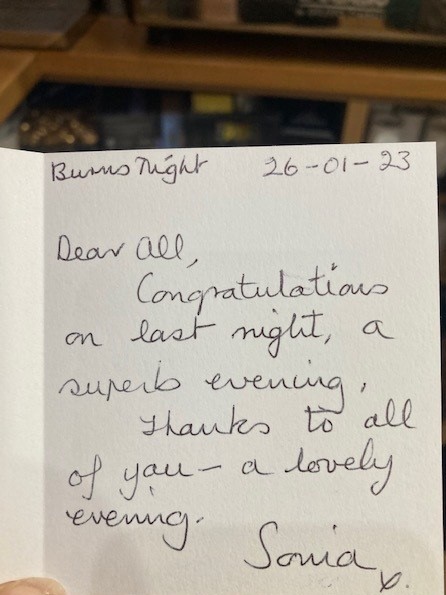 Burns Night 26-01-23
Dear All,
Congratulations
on last night, a
superb evening.
Thanks to all
of you - a lovely
evening.
Sonia x.